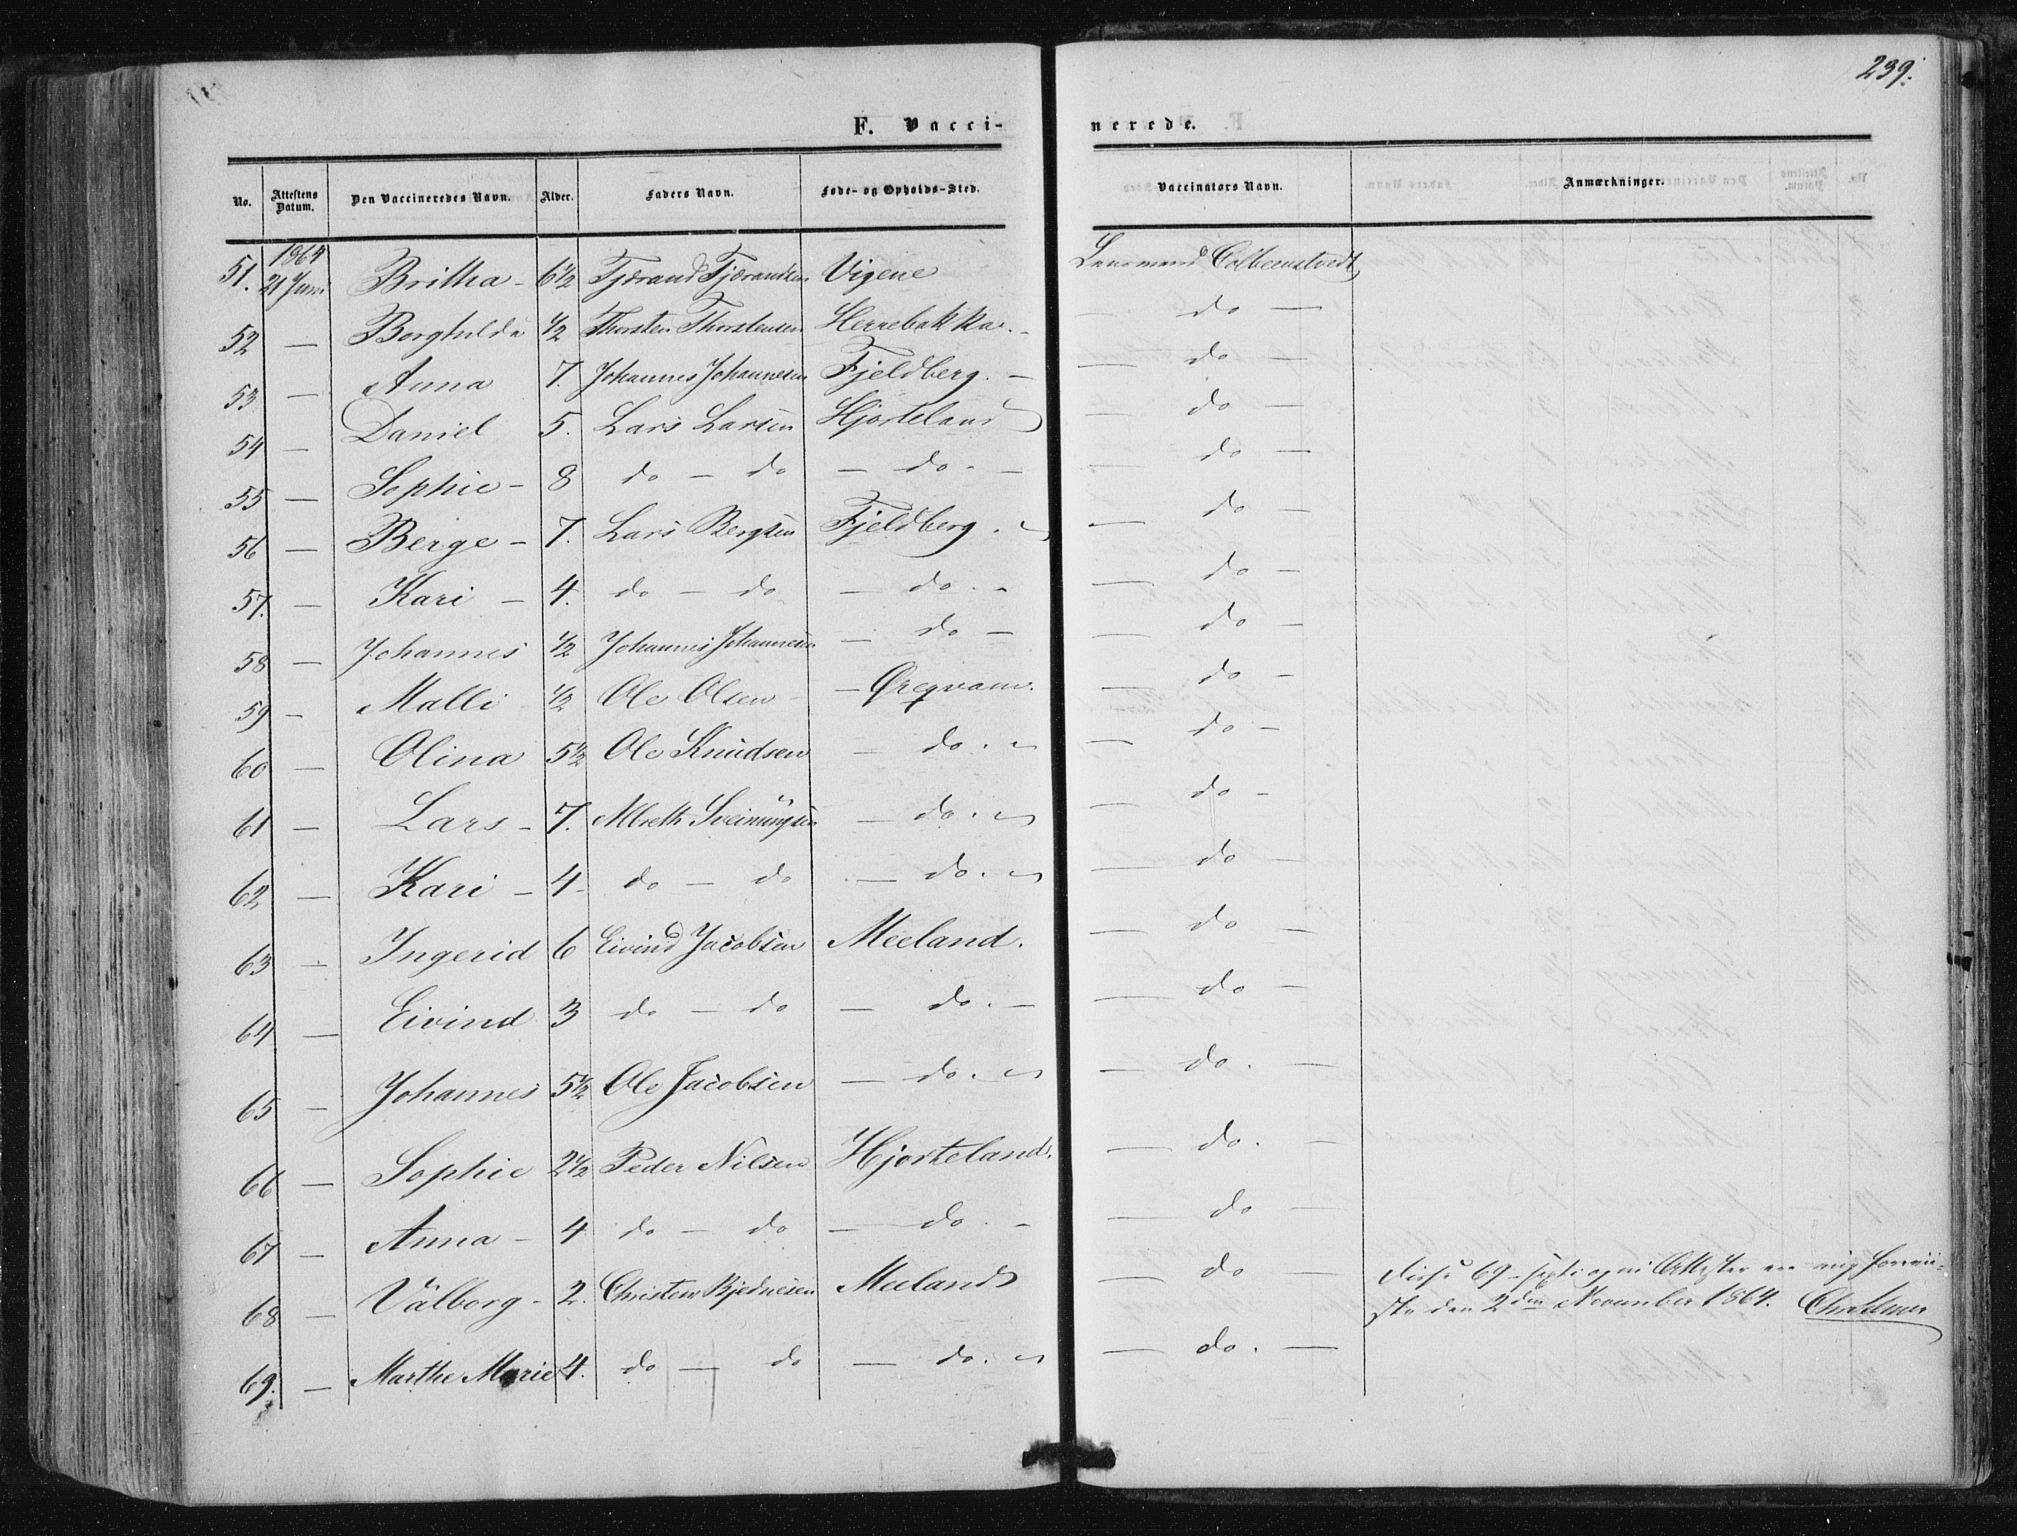 239.
F. Vacci-
nerede.
No. Attestens Datum. Den Vaccineredes Navn. Alder. Faders Navn. Føde- og Opholds-Sted. Vaccinators Navn. Anmærkninger.
1864
51. 21 Juni Britha - 6½ Tjerand Tjerandsen Vigene Lensmand
52 — Borghilda ½ Thorsten Thorstensen Herrebakka. — do —
53 — Anna 7. Johannes Johannesen Fjeldberg. — — do —
54 — Daniel 5. Lars Larsen Hjorteland — do —
55 — Sophie - 8 do — do — do. — — do —
56 — Berge - 7. Lars Bergsen Fjeldberg. — do —
57. — Kari — 4. do — do — do. — do —
58 — Johannes ½ Johannes Johannesen — do — — do —
59 — Malli ½ Ole Olsen — — do —
60 — Olina 5½ Ole Knudsen — do. — do —
61 — Lars - 7. Albreth Sveinungsen — do. — do —
62 — Kari — 4 - do — do — do. — do —
63 — Ingerid 6 Eivind Jacobsen Meeland. — do —
64 — Eivind 3 do — do — do. — — do —
65 — Johannes 5½ Ole Jacobsen — do. — do. —
66 — Sophie 2½ Peder Nilsen Hjorteland. — do. —
67 — Anna — 4 do — do — do. — — do —
68 — Valborg - 2. Christen Meeland — do — Disse 69 - Attester ere mig
den 2den November 1864.
69. — Marthe Marie 4. do — do — do. — do. —